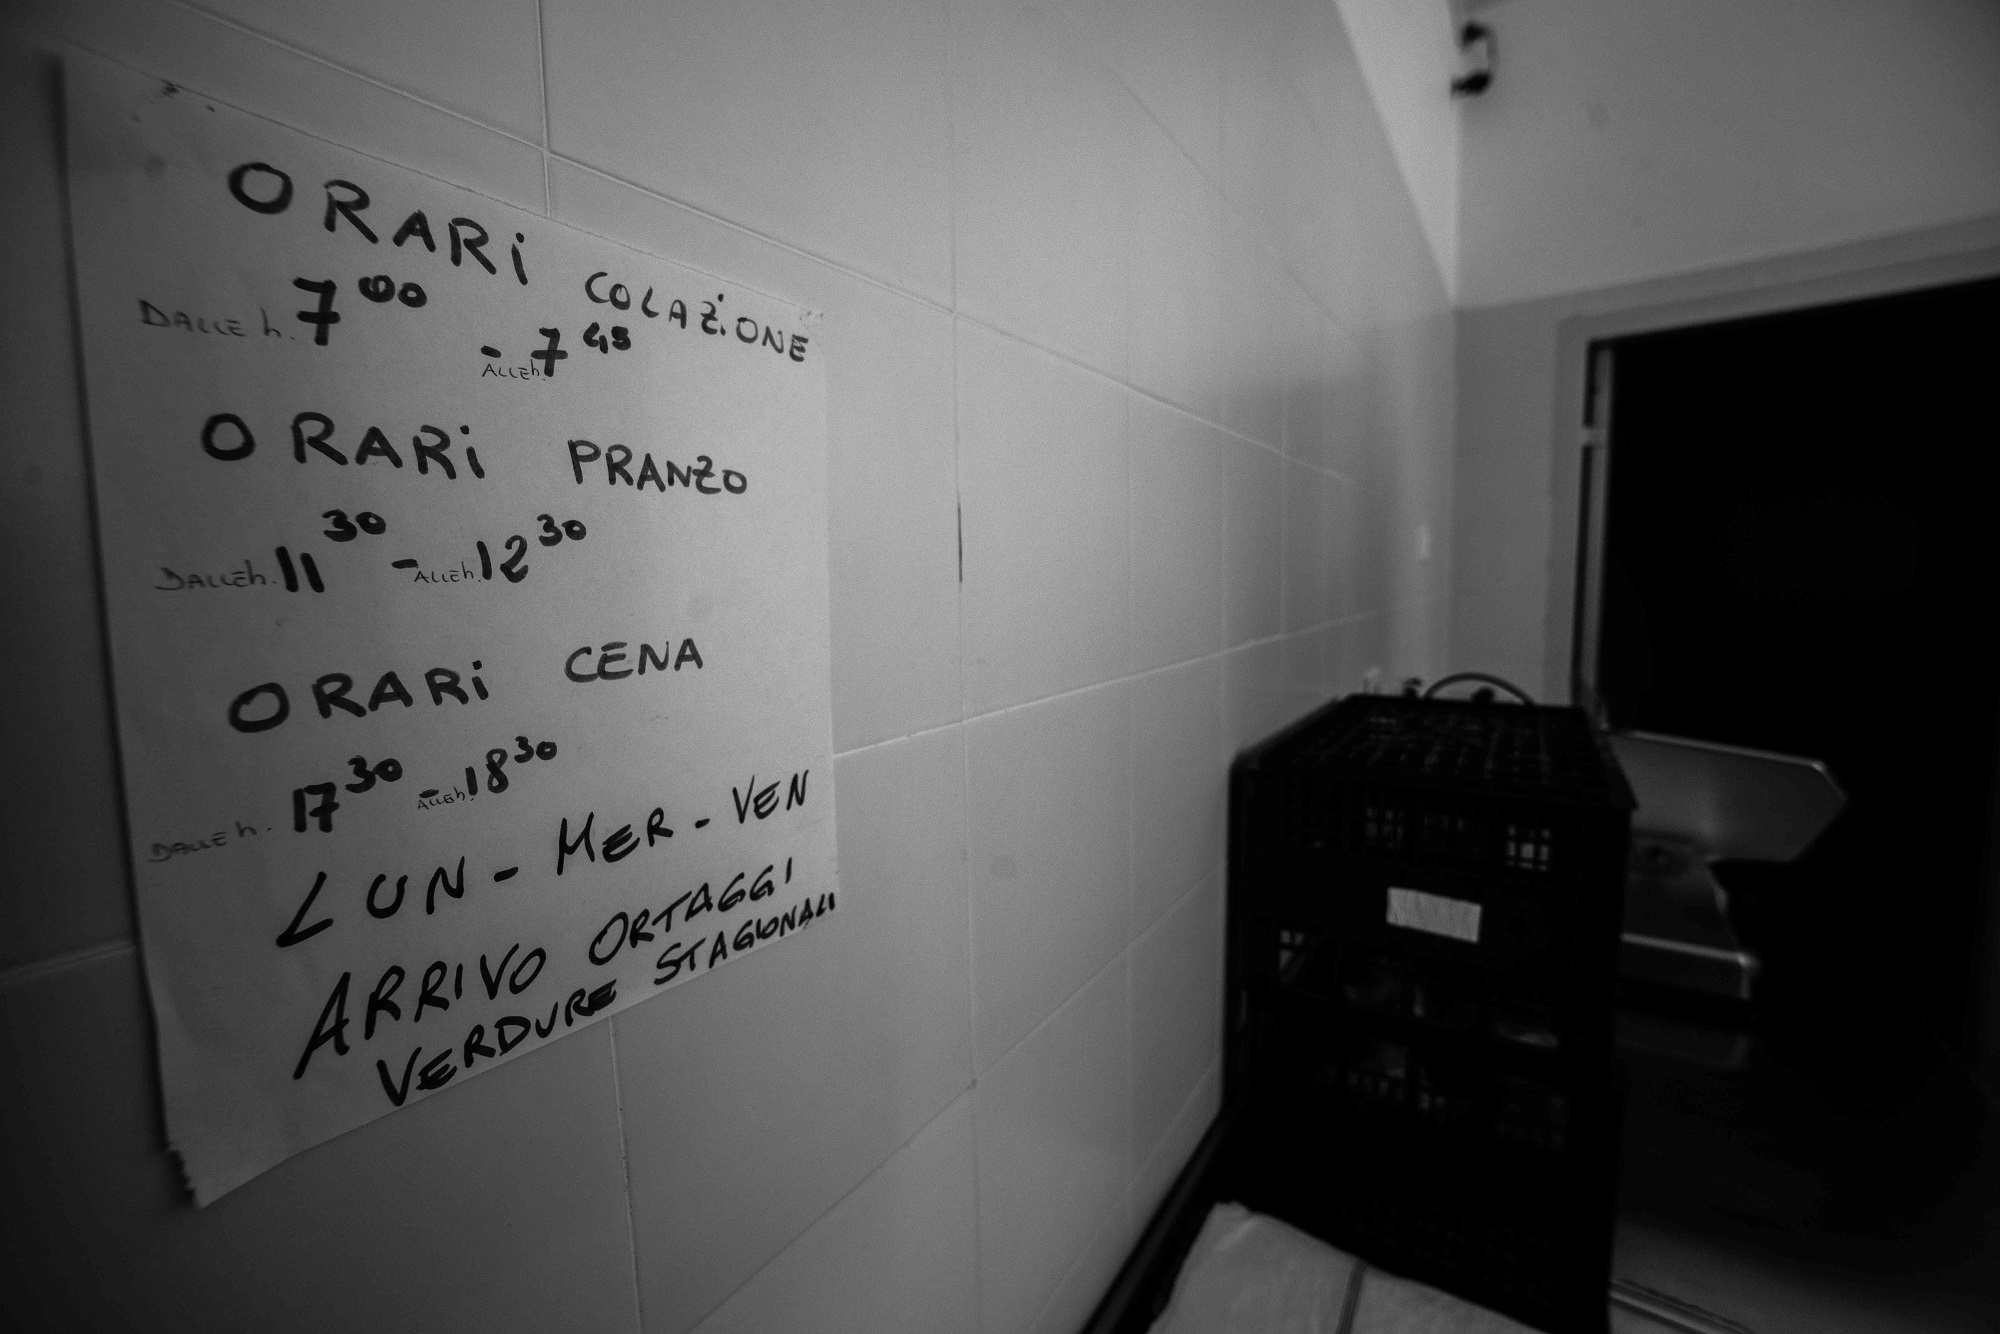 ORARi COLAZiONE
DALLE h. 7 00 - ALLE h. 7 45
ORARi PRANZO
DALLE h. 11 30 - ALLE h. 12 30
ORARi CENA
DALLE h. 17 30 - ALLE h. 18 30
LUN - MER - VEN
ARRIVO ORTAGGI
VERDURE STAGIONALI